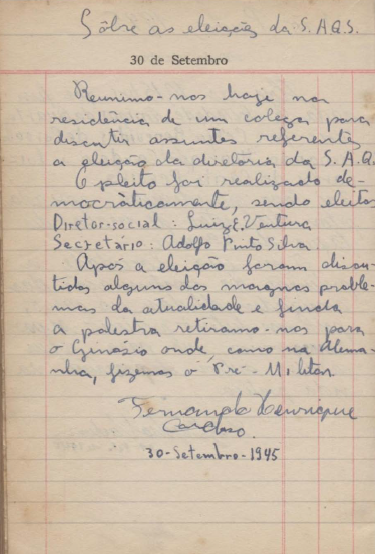 Sôbre as eleições da S.AQS.
30 de Setembro
Reunimo-nos hoje na
residência de um colega para
discutir assuntos referentes
a eleição da diretoria da S.A.Q.
O pleito foi realizado de-
mocràticamente, sendo eleitos
Diretor-social: Luiz E. Ventura
Secretário: Adolfo Pinto Silva.
Após a eleição foram discu-
tidos alguns dos magnos proble-
mas da atualidade e finda
a palestra retiramo-nos para
o Ginásio onde, como na Alema-
nha, fizemos o Pré-Militar.
Fernando Henrique
Cardoso.
30-Setembro-1945